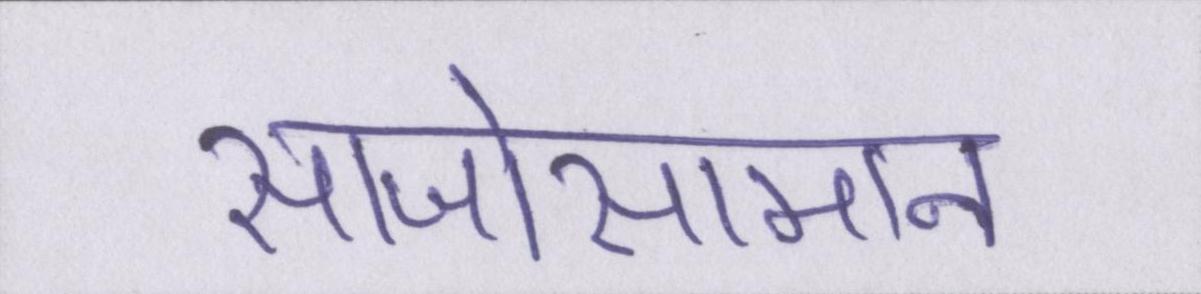 साजोसामान